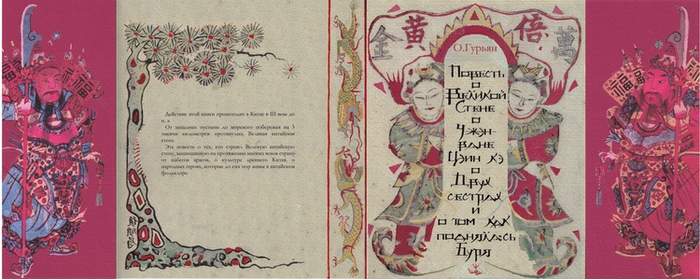 Действие этой книги происходит в Китае в III веке до
н. э.
От западных пустынь до морского побережья на 5
тысяч километров протянулась Великая китайская
стена.
Эта повесть о тех, кто строил Великую китайскую
стену, защищавшую на протяжении многих веков страну
от набегов врагов, о культуре древнего Китая, о
народных героях, которые до сих пор живы в китайском
фольклоре.
金黃倍萬
О.Гурьян
Повесть
о
Великой
Стене
о
Чжэн-
ване
Цзин Кэ
о
Двух
сестрах
и
о том как
поднялась
Буря